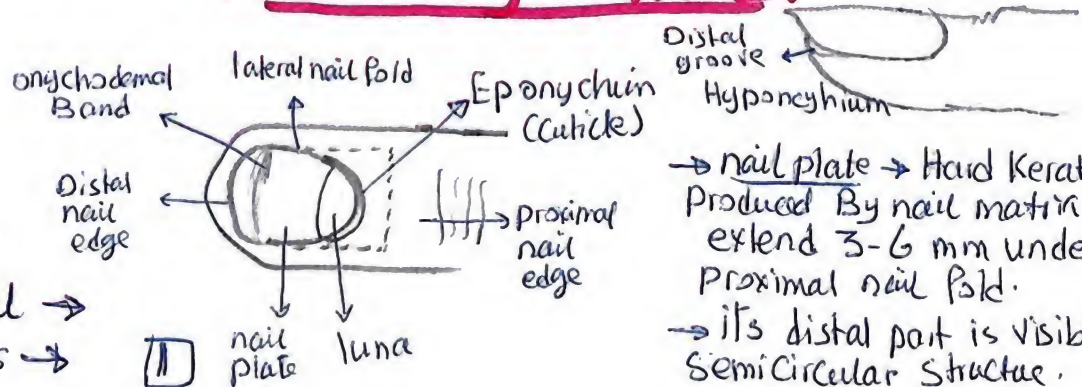 onychodemal
Band
lateral nail fold
Eponychuin
(Cuticle)
Distal
nail
edge
proximal
nail
edge
nail
plate
luna
Distal
groove
Hyponcyhium
→ nail plate → Hard Kerat
Produced By nail matrix
extend 3-6 mm unde
Proximal nail fold.
→ its distal part is visib
SemiCircular Structue.